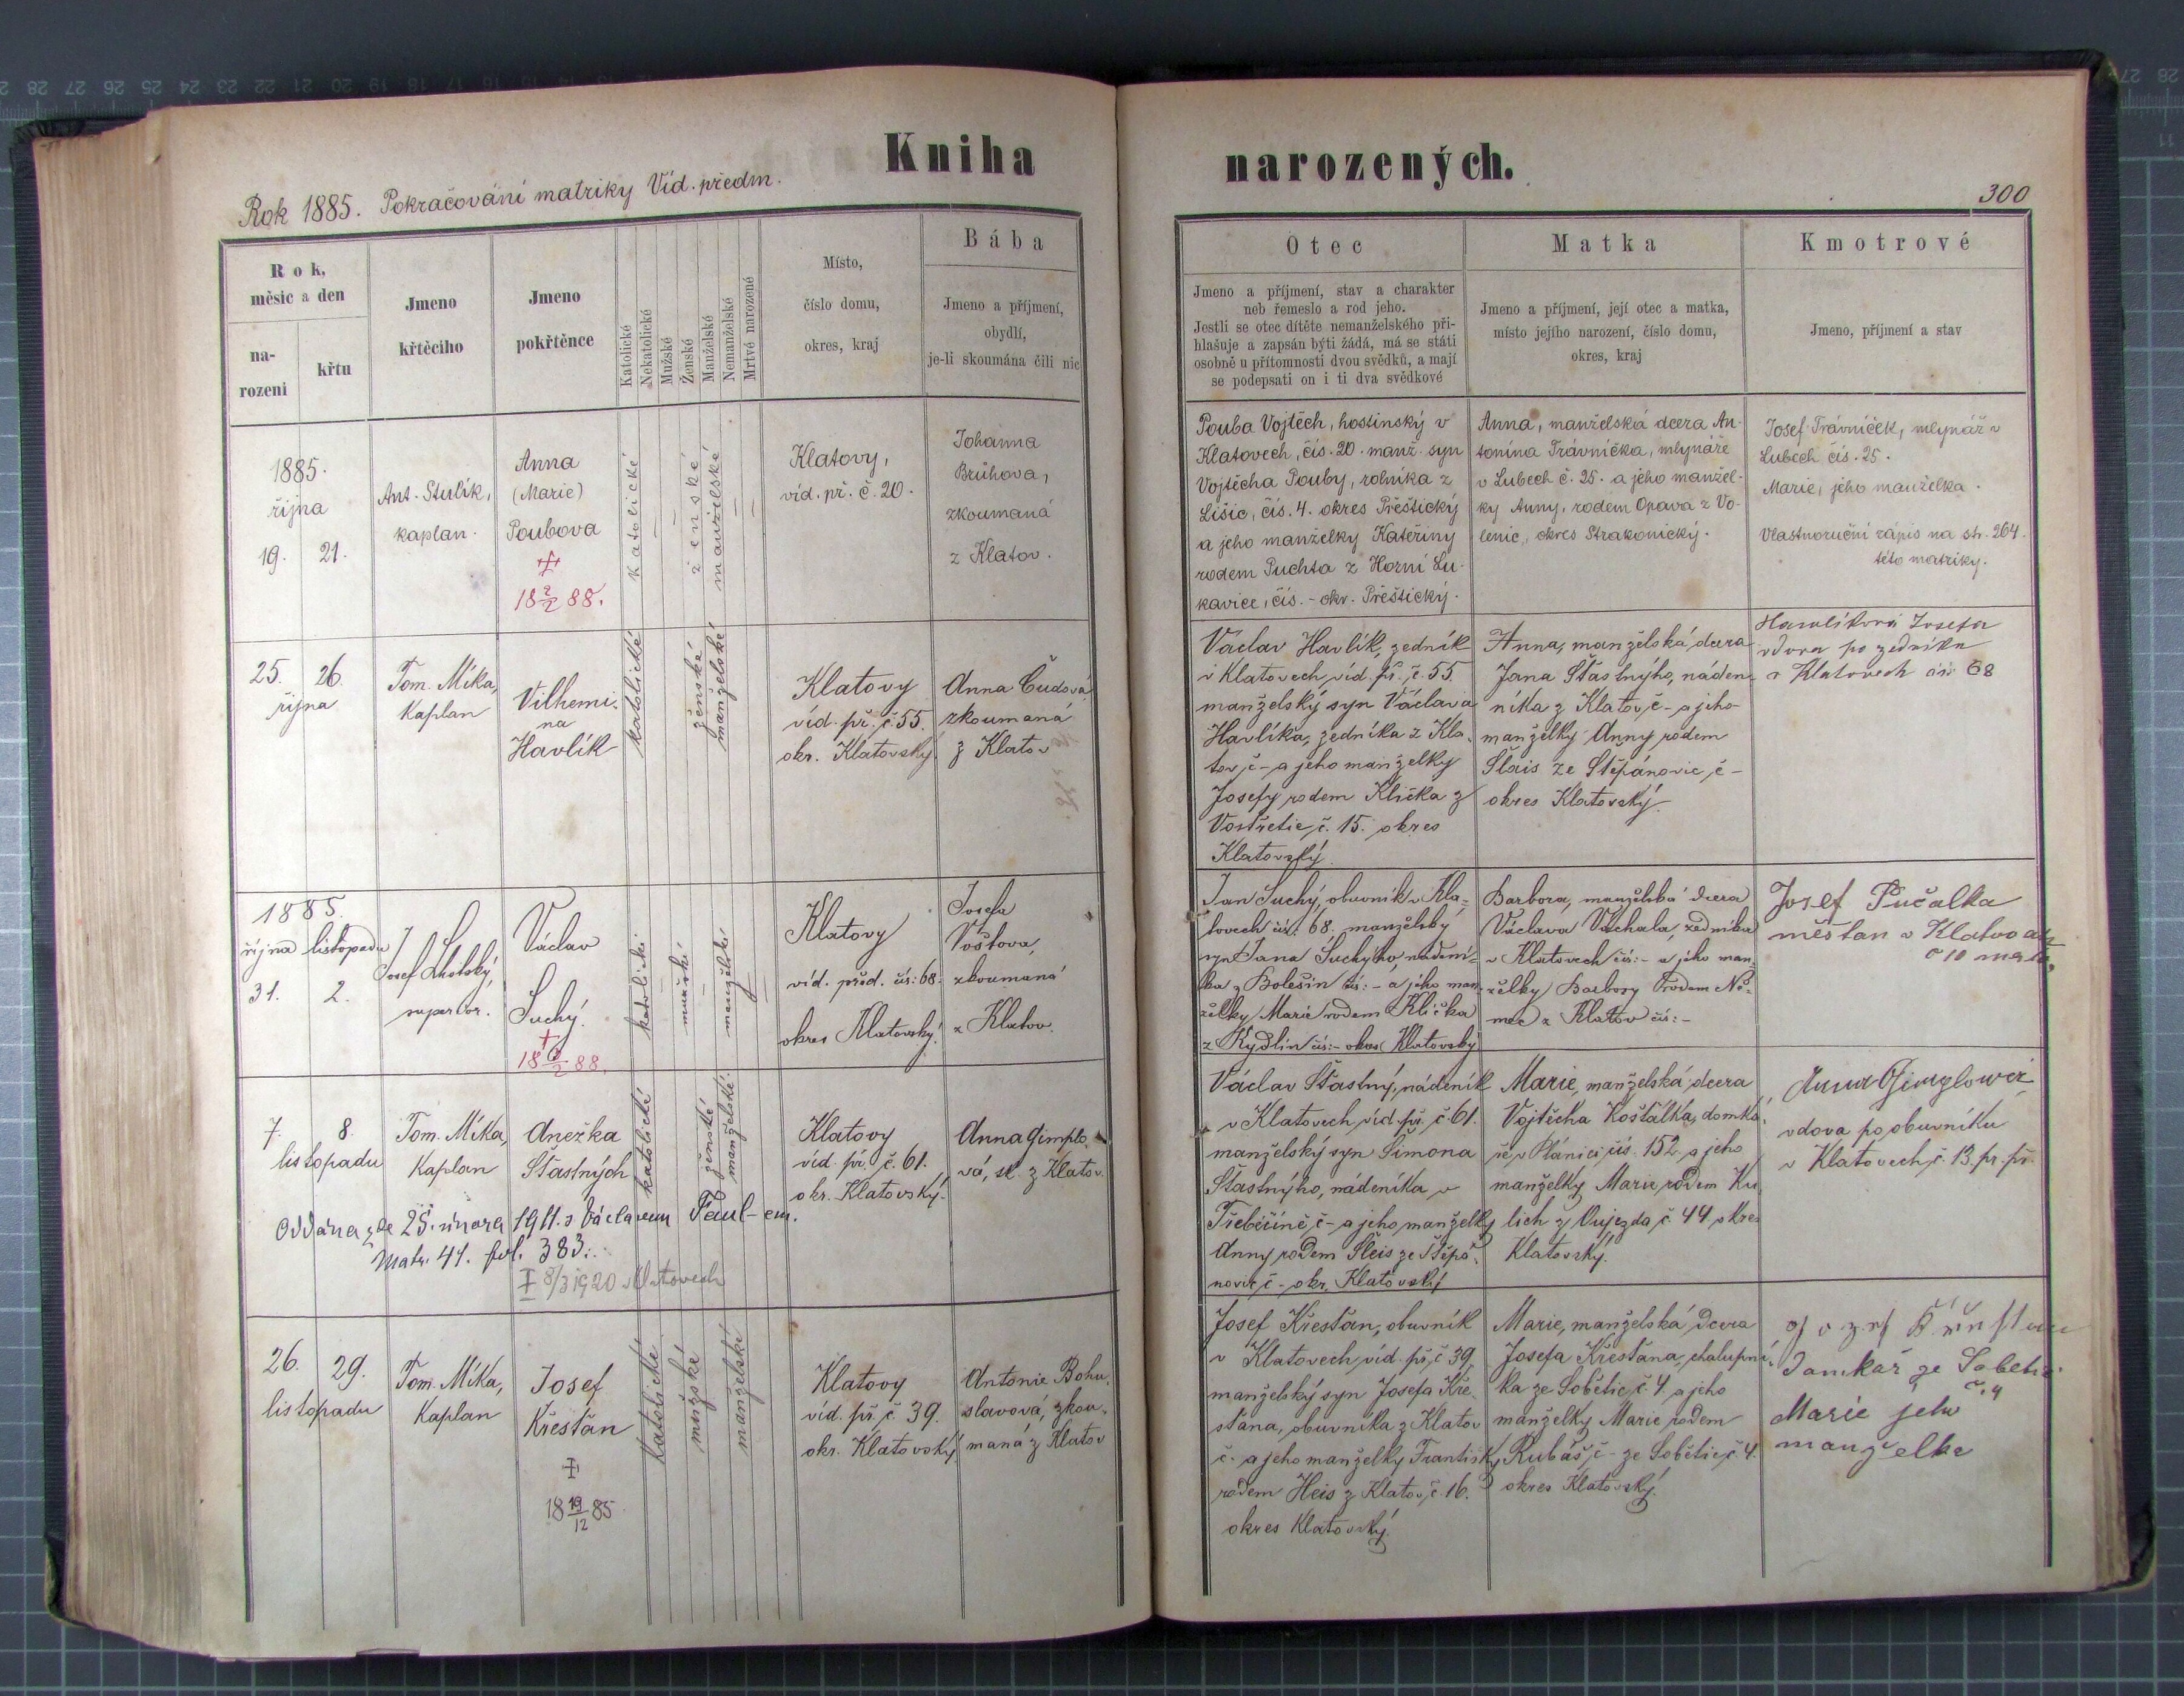 Kniha narozených.
Rok 1885. Pokračování matriky Víd. předm.
300
Rok,
měsíc a den
na-
rození
křtu
Jmeno
křtěcího
Jmeno
pokřtěnce
Katolické
Nekatolické
Mužské
Ženské
Manželské
Nemanželské
Mrtvě narozené
Místo,
číslo domu,
okres, kraj
Bába
Jmeno a příjmení,
obydlí,
je-li skoumána čili nic
Otec
Jmeno a příjmení, stav a charakter
neb řemeslo a rod jeho.
Jestli se otec dítěte nemanželského při-
hlašuje a zapsán býti žádá, má se státi
osobně u přítomnosti dvou svědků, a mají
se podepsati on i ti dva svědkové
Matka
Jmeno a příjmení, její otec a matka,
místo jejího narození, číslo domu,
okres, kraj
Kmotrové
Jmeno, příjmení a stav
1885.
října
19. 21.
Ant. Stulík,
kaplan.
Anna
(Marie)
Poubova
18 2/2 88.
katolické
ženské
manželské
Klatovy,
víd. př. č. 20.
Johanna
Brůhova,
zkoumaná
z Klatov.
Pouba Vojtěch, hostinský v
Klatovech, čís. 20. manž. syn
Vojtěcha Pouby, rolníka z
Lišic, čís. 4. okres Přeštický
a jeho manželky Kateřiny
rodem Puchta z Horní Lu-
kavice, čís. - okr. Přeštický.
Anna, manželská dcera An-
tonína Trávníčka, mlynáře
v Lubech č. 25. a jeho manžel-
ky Anny, rodem Opava z Vo-
lenic, okres Strakonický.
Josef Trávníček, mlynář v
Lubech čís. 25.
Marie, jeho manželka.
Vlastnoruční zápis na str. 264.
této matriky.
25. 26.
října
Tom. Míka,
Kaplan
Vilhemi-
na
Havlík
katolické
ženská
manželské
Klatovy
víd. př. č. 55.
okr. Klatovský
Anna Čudová
zkoumaná
z Klatov
Václav Havlík, zedník
v Klatovech, víd. př. č. 55.
manželský syn Václava
Havlíka, zedníka z Kla-
tov, č - a jeho manželky
Josefy rodem Klička z
Vostřetic, č. 15. okres
Klatovský.
Anna, manželská dcera
Jana Šťastnýho, náden-
níka z Klatov, č - a jeho
manželky Anny rodem
Šlais ze Štěpánovic, č -
okres Klatovský.
Havlíková Josefa
vdova po zedníku
v Klatovech čís 68
1885.
října listopadu
31. 2.
Josef Lhotský,
Václav
Suchý.
88.
katolické
mužské
manželské
Klatovy
víd. před. čís: 68.
okres Klatovský.
Josefa
Voštova,
zkoumaná
z Klatov.
Jan Suchý, obuvník v Kla-
tovech čís: 68. manželský
syn Jana Suchýho, nádení-
ka z Bolešin čís: - a jeho man-
želky Marie rodem Klička
z Kydlin čís: - okres Klatovský
Barbora, manželská dcera
Václava Váchala, zedníka
v Klatovech čís: - a jeho man-
želky Barbory rodem Ně-
mec z Klatov čís: -
Josef Pučalka
měšťan v Klatovách
7. 8.
listopadu
Tom. Míka,
Kaplan
Anežka
Šťastných
katolické
ženské
manželské.
Klatovy
víd. př. č. 61.
okr. Klatovský.
Anna Gimplo-
vá, sk. z Klatov.
Oddána zde 25. února 1911. s Václavem Faul-em.
Matr. 41. fol. 383.
8/3 1920 v Klatovech
Václav Šťastný, nádeník
v Klatovech, víd. př. č. 61.
manželský syn Šimona
Šťastnýho, nádeníka v
Třebíčině, č - a jeho manželky
Anny rodem Šleis ze Štěpá-
novic, č - okr. Klatovský
Marie, manželská dcera
Vojtěcha Košťálka, domká-
ře v Plánici, čís. 152. a jeho
manželky Marie, rodem Ku-
lich z Oujezda č. 44 okres
Klatovský.
Anna Gimplowá
vdova po obuvníku
v Klatovech, č. 13. pr. př.
26. 29.
listopadu
Tom. Míka,
Kaplan
Josef
Křesťan
18 19/12 85
katolické
mužské
manželské
Klatovy
víd. př. č. 39.
okr. Klatovský
Antonie Bohu-
slavová, zkou-
maná z Klatov
Josef Křesťan, obuvník
v Klatovech, víd. př, č 39
manželský syn Josefa Kře-
sťana, obuvníka z Klatov
č. - a jeho manželky Františky
rodem Heis z Klatov, č. 16.
okres Klatovský.
Marie, manželská dcera
Josefa Křesťana, chalupní-
ka ze Sobětic, č. 4 a jeho
manželky Marie rodem
Rubáš, č - ze Sobětic, č. 4.
okres Klatovský.
Jozef Křesťan
Domkař ze Sobětic
č. 4
Marie jeho
manželka